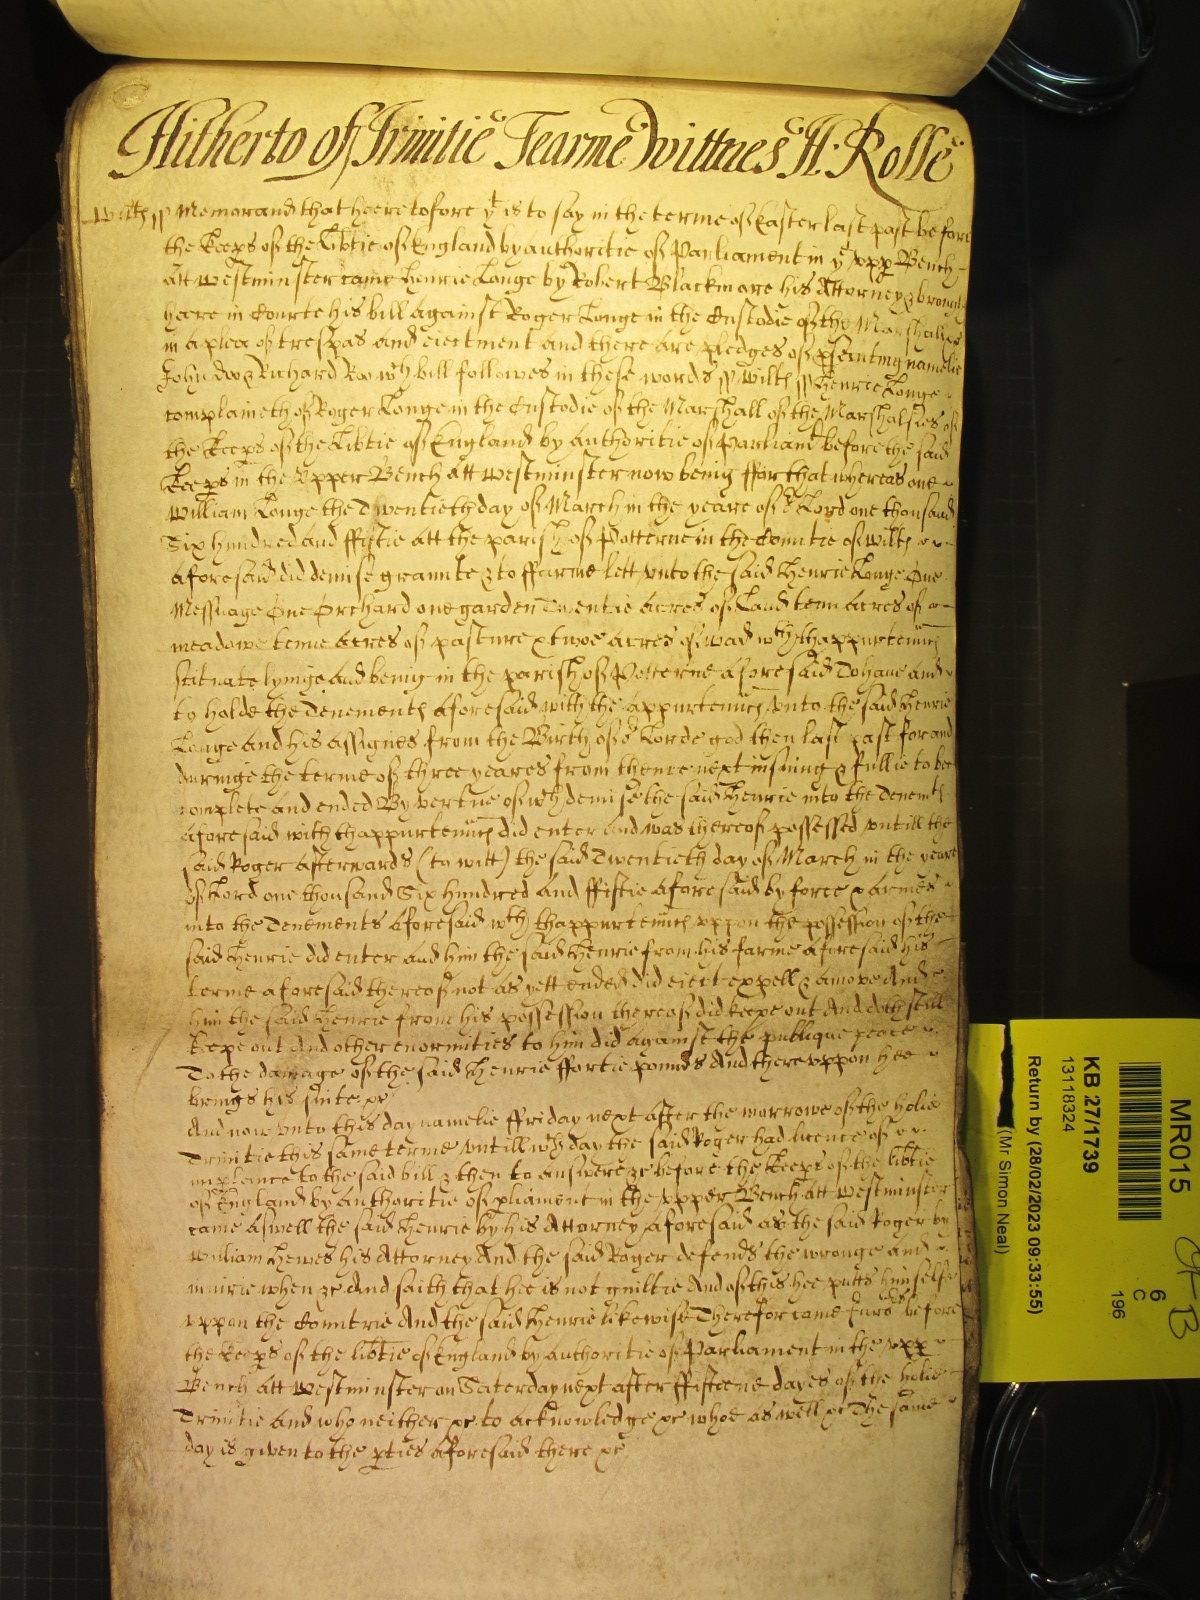 Hitherto of Trinitie Tearme Wittnes H: Rolle
Wilts ss Memorand that heeretofore yt is to say in the terme of Easter last past before
the Keeps of the Libtie of England by authoritie of Parliament in ye vpp Bench
att Westminster came Henrie Longe by Robert Blackmore his Attorney & brought
heare in Courte his bill against Roger Longe in the Custodie of the Marshall &c
in a plea of trespas and eiectment and there are pledges of psecuting namelie
John Doo & Richard Roo wch bill followes in these words ss Wilts ss Henrie Longe
complaineth of Roger Longe in the Custodie of the Marshall of the Marshalsies of
the Keeps of the Libtie of England by authoritie of Parliamt before the said
Keeps in the Vpper Bench att Westminster now being ffor that whereas one
William Longe the Twentieth day of March in the yeare of or Lord one thousand
Six hundred and ffiftie att the parish of Potterne in the Countie of Wilts
aforesaid did demise graunte & to ffarme lett vnto the said Henrie Longe One
Messuage One Orchard one garden Twentie acres of Land tenn acres of
meadowe tenne acres of pasture & twoe acres of wood wth thappurtenncs
scituate lyinge and being in the parish of Potterne aforesaid To haue and
to holde the Tenements aforesaid with the appurtenncs vnto the said Henrie
Longe and his assignes from the Birth of or Lorde god then last past for and
duringe the terme of three yeares from thence next insuing & fullie to bee
complete and ended By vertue of wch demise the said Henrie into the Tenemts
aforesaid with thappurtenncs did enter and was thereof possessed vntill the
said Roger afterwards (to witt) the said Twentieth day of March in the yeare
of or Lord one thousand Six hundred and ffiftie aforesaid by force & armes
into the Tenements aforesaid wth thappurtenncs vppon the possession of the
said Henrie did enter and him the said Henrie from his farme aforesaid his
terme aforesaid thereof not as yett ended did eiect expell & amove And
him the said Henrie from his possession thereof did keepe out And doth still
keepe out And other enormities to him did against the publique peace
To the damage of the said Henrie ffortie pounds And therevppon hee
brings his suite &c
And now vnto this day namelie ffriday next after the morrowe of the holie
Trinitie this same terme vntill wch day the said Roger had licence of
imparlance to the said bill & then to answere &c before the Keeps of the libtie
of England by authoritie of pliament in the vpper Bench att Westminster
came aswell the said Henrie by his Attorney aforesaid as the said Roger by
William Hewes his Attorney And the said Roger defends the wronge and
iniurie when &c And saith that hee is not guiltie And of this hee putts himselfe
vppon the Countrie And the said Henrie likewise Therefor came Jurs before
the Keeps of the libtie of England by authoritie of Parliament in the vpp
Bench att Westminster on Saterday next after ffifteene dayes of the holie
Trinitie and who neither &c to acknowledge &c whoe as well &c The same
day is given to the pties aforesaid there &c
MR015
6
C
196
KB 27/1739
13118324
Return by (28/02/2023 09:33:55)
(Mr Simon Neal)